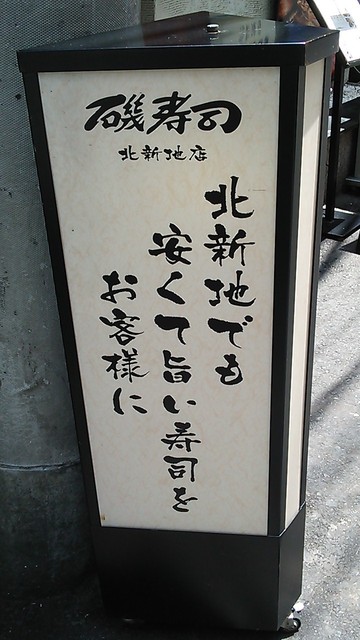 磯寿司
北新地店
北新地でも
安くて旨い寿司を
お客様に